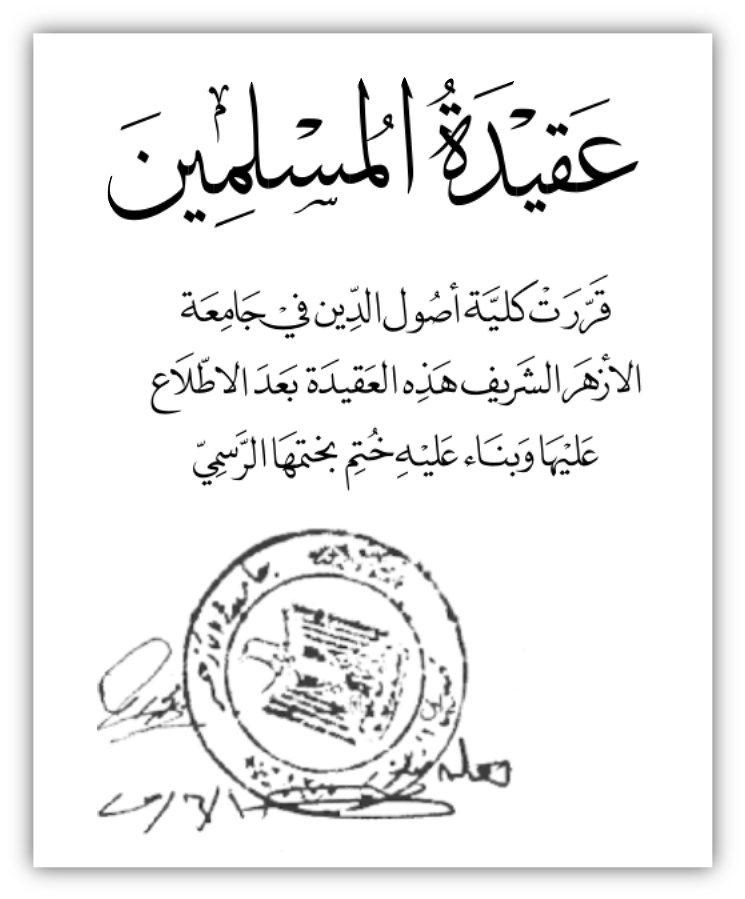 عَقِيدَةُ الْمُسْلِمِينَ
قَرَّرَتْ كليَّة أصُول الدِّين فيْ جَامِعَة
الازْهَر الشَريف هَذِه العَقيدَة بَعدَ الاطّلَاع
عَليْهَا وَبنَاء عَليْهِ خُتِم بختمهَا الرَّسمِيّ
جامعة الازهر